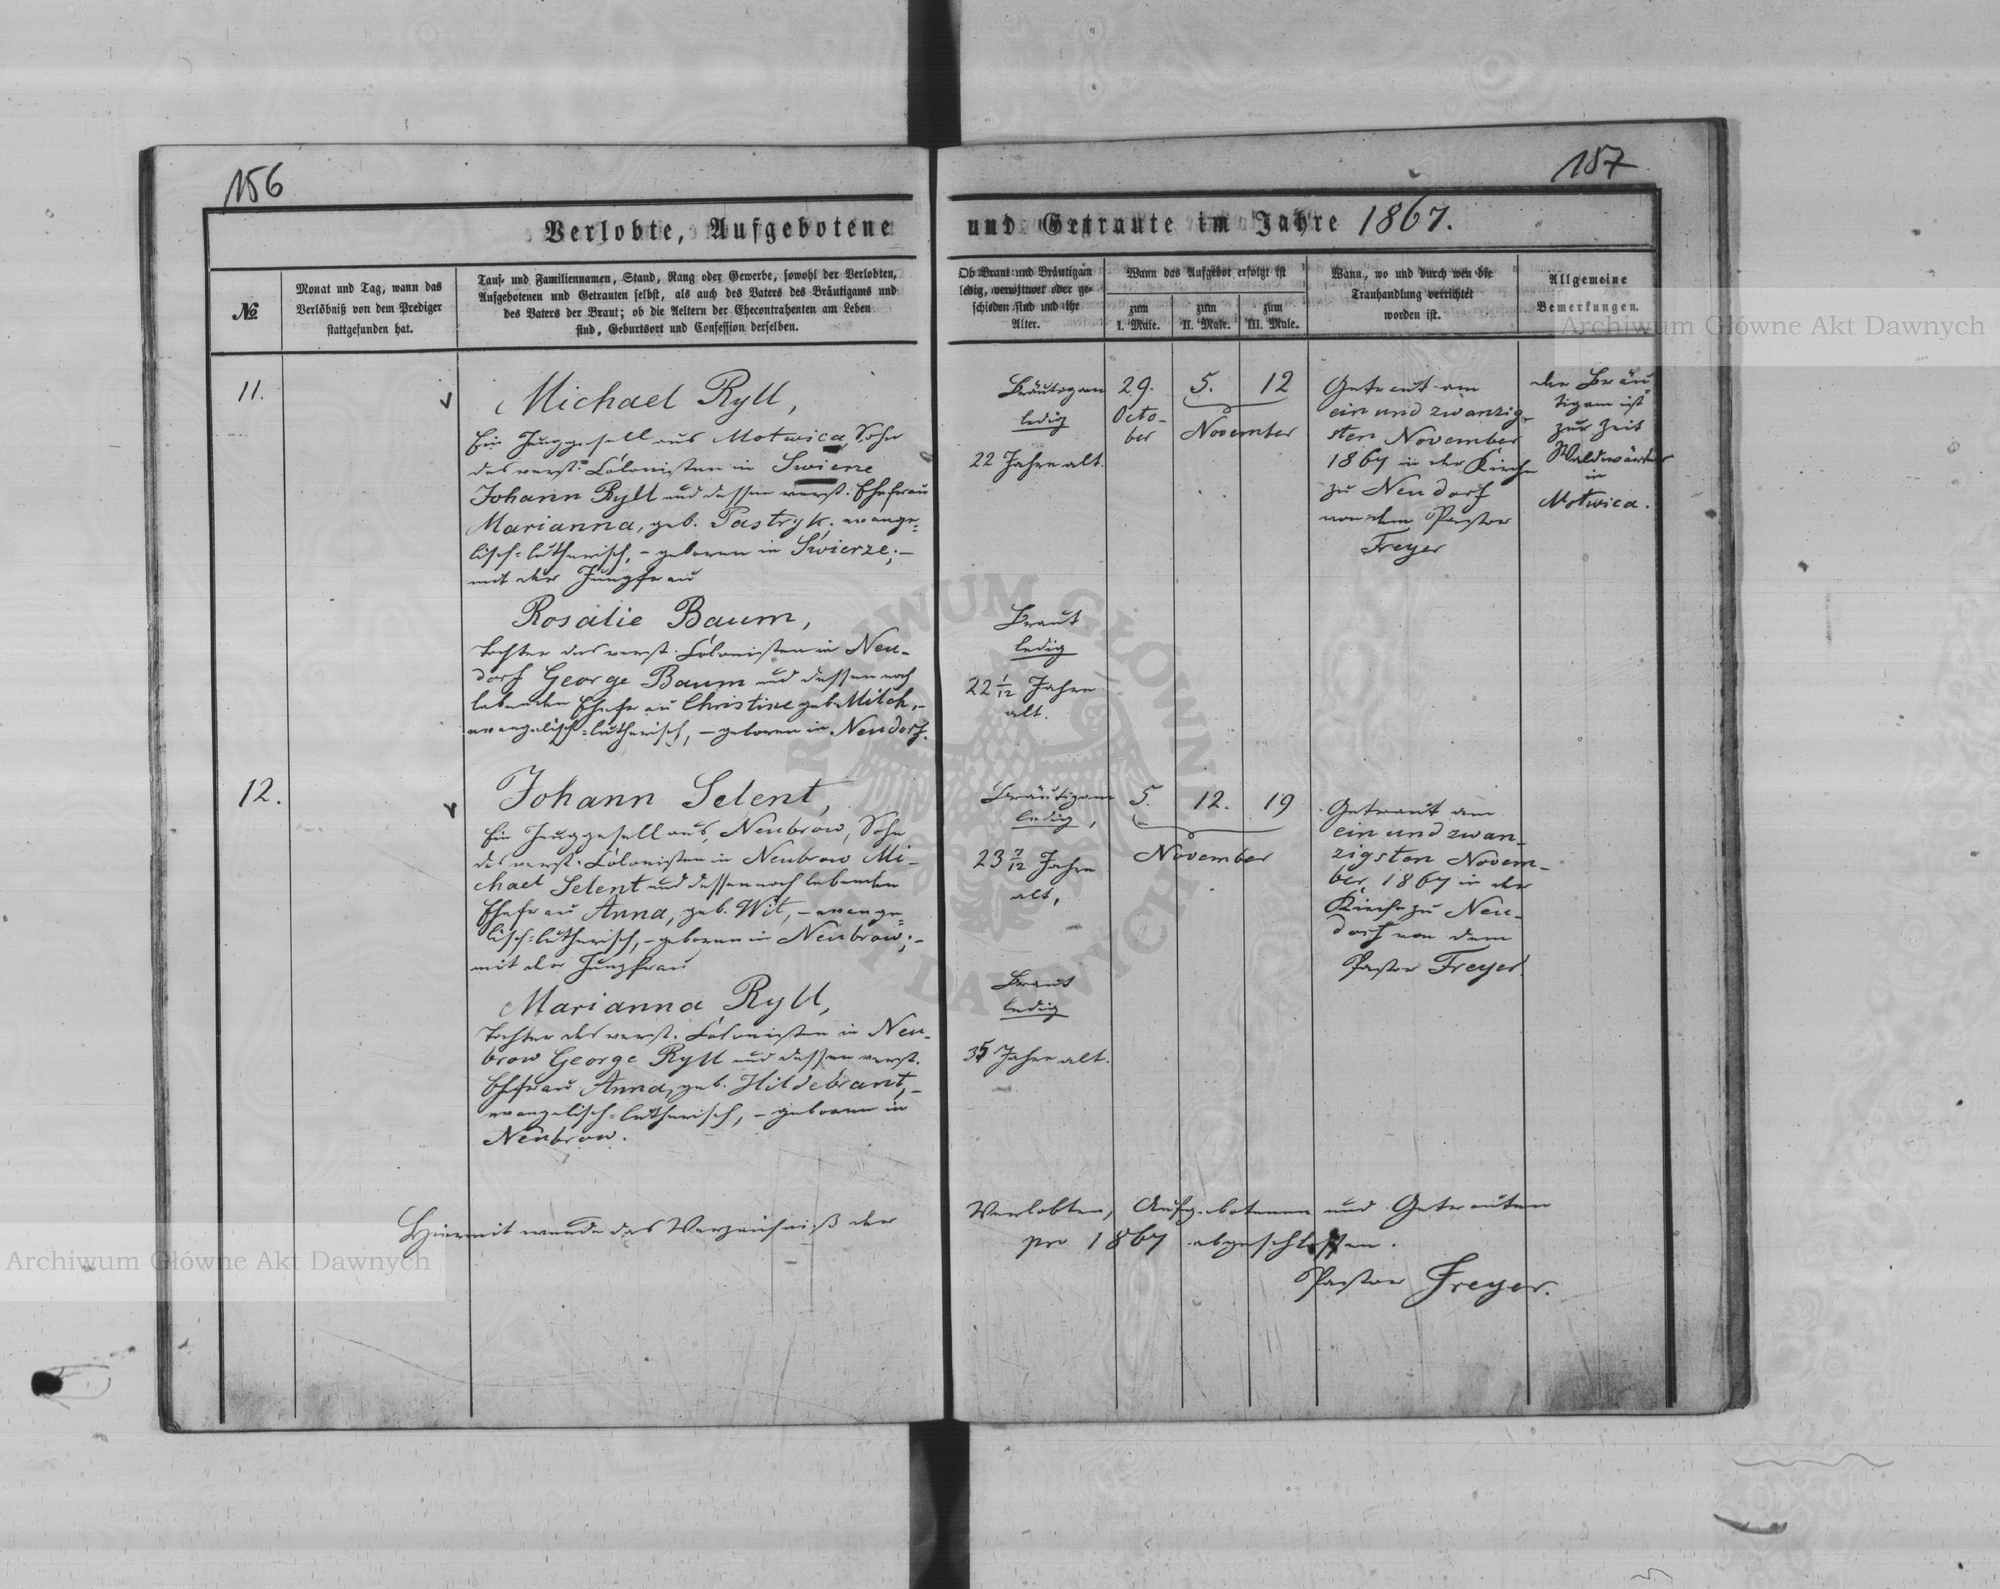 156
157
Verlobte, Aufgebotene und Getraute im Jahre 1867.
№
Monat und Tag, wann das
Verlöbniß von dem Prediger
stattgefunden hat.
Tauf- und Familiennamen, Stand, Rang oder Gewerbe, sowohl der Verlobten,
Aufgebotenen und Getrauten selbst, als auch des Vaters des Bräutigams und
des Vaters der Braut; ob die Aeltern der Ehecontrahenten am Leben
sind, Geburtsort und Confession derselben.
Ob Braut und Bräutigam
ledig, verwittwet oder ge-
schieden sind und ihr
Alter.
Wann das Aufgebot erfolgt ist
zum
I. Male.
zum
II. Male.
zum
III. Male.
Wann, wo und durch wen die
Trauhandlung verrichtet
worden ist.
Allgemeine
Bemerkungen.
11.
Michael Ryll,
Ein Junggesell aus Motwica, Sohn
des verst. Colonisten in Swierze
Johann Ryll und dessen verst. Ehefrau
Marianna, geb. Pastryk. evange-
lisch-lutherisch, – geboren in Swierze; –
mit der Jungfrau
Rosalie Baum,
Tochter des verst. Colonisten in Neu-
dorf George Baum und dessen noch
lebenden Ehefrau Christine geb. Milch, –
evangelisch-lutherisch, – geboren in Neudorf.
Bräutigam
ledig
22 Jahre alt.
Braut
ledig
22 1/12 Jahre
alt.
29.
Octo-
ber
5. 12
November
Getraut am
ein und zwanzig-
sten November
1867 in der Kirche
zu Neudorf
von dem Pastor
Freyer
Der Bräu
tigam ist
zur Zeit
Waldwärter
in
Motwica.
12.
Johann Selent,
Ein Junggesell aus Neubrow, Sohn
des verst. Colonisten in Neubrow Mi-
chael Selent und dessen noch lebenden
Ehefrau Anna, geb. Wit, – evange-
lisch-lutherisch, – geboren in Neubrow; –
mit der Jungfrau
Marianna Ryll,
Tochter des verst. Colonisten in Neu-
brow George Ryll und dessen verst.
Ehefrau Anna, geb. Hildebrant, –
evangelisch-lutherisch, – geboren in
Neubrow.
Bräutigam
ledig,
23 7/12 Jahre
alt,
Braut
ledig
35 Jahre alt.
5. 12. 19
November
Getraut am
ein und zwan-
zigsten Novem-
ber 1867 in der
Kirche zu Neu-
dorf von dem
Pastor Freyer.
Hiermit wurde das Verzeichniß der Verlobten, Aufgebotenen und Getrauten
pro 1867 abgeschlossen.
Pastor Freyer.
Archiwum Główne Akt Dawnych
Archiwum Główne Akt Dawnych
ARCHIWUM GŁÓWNE AKT DAWNYCH